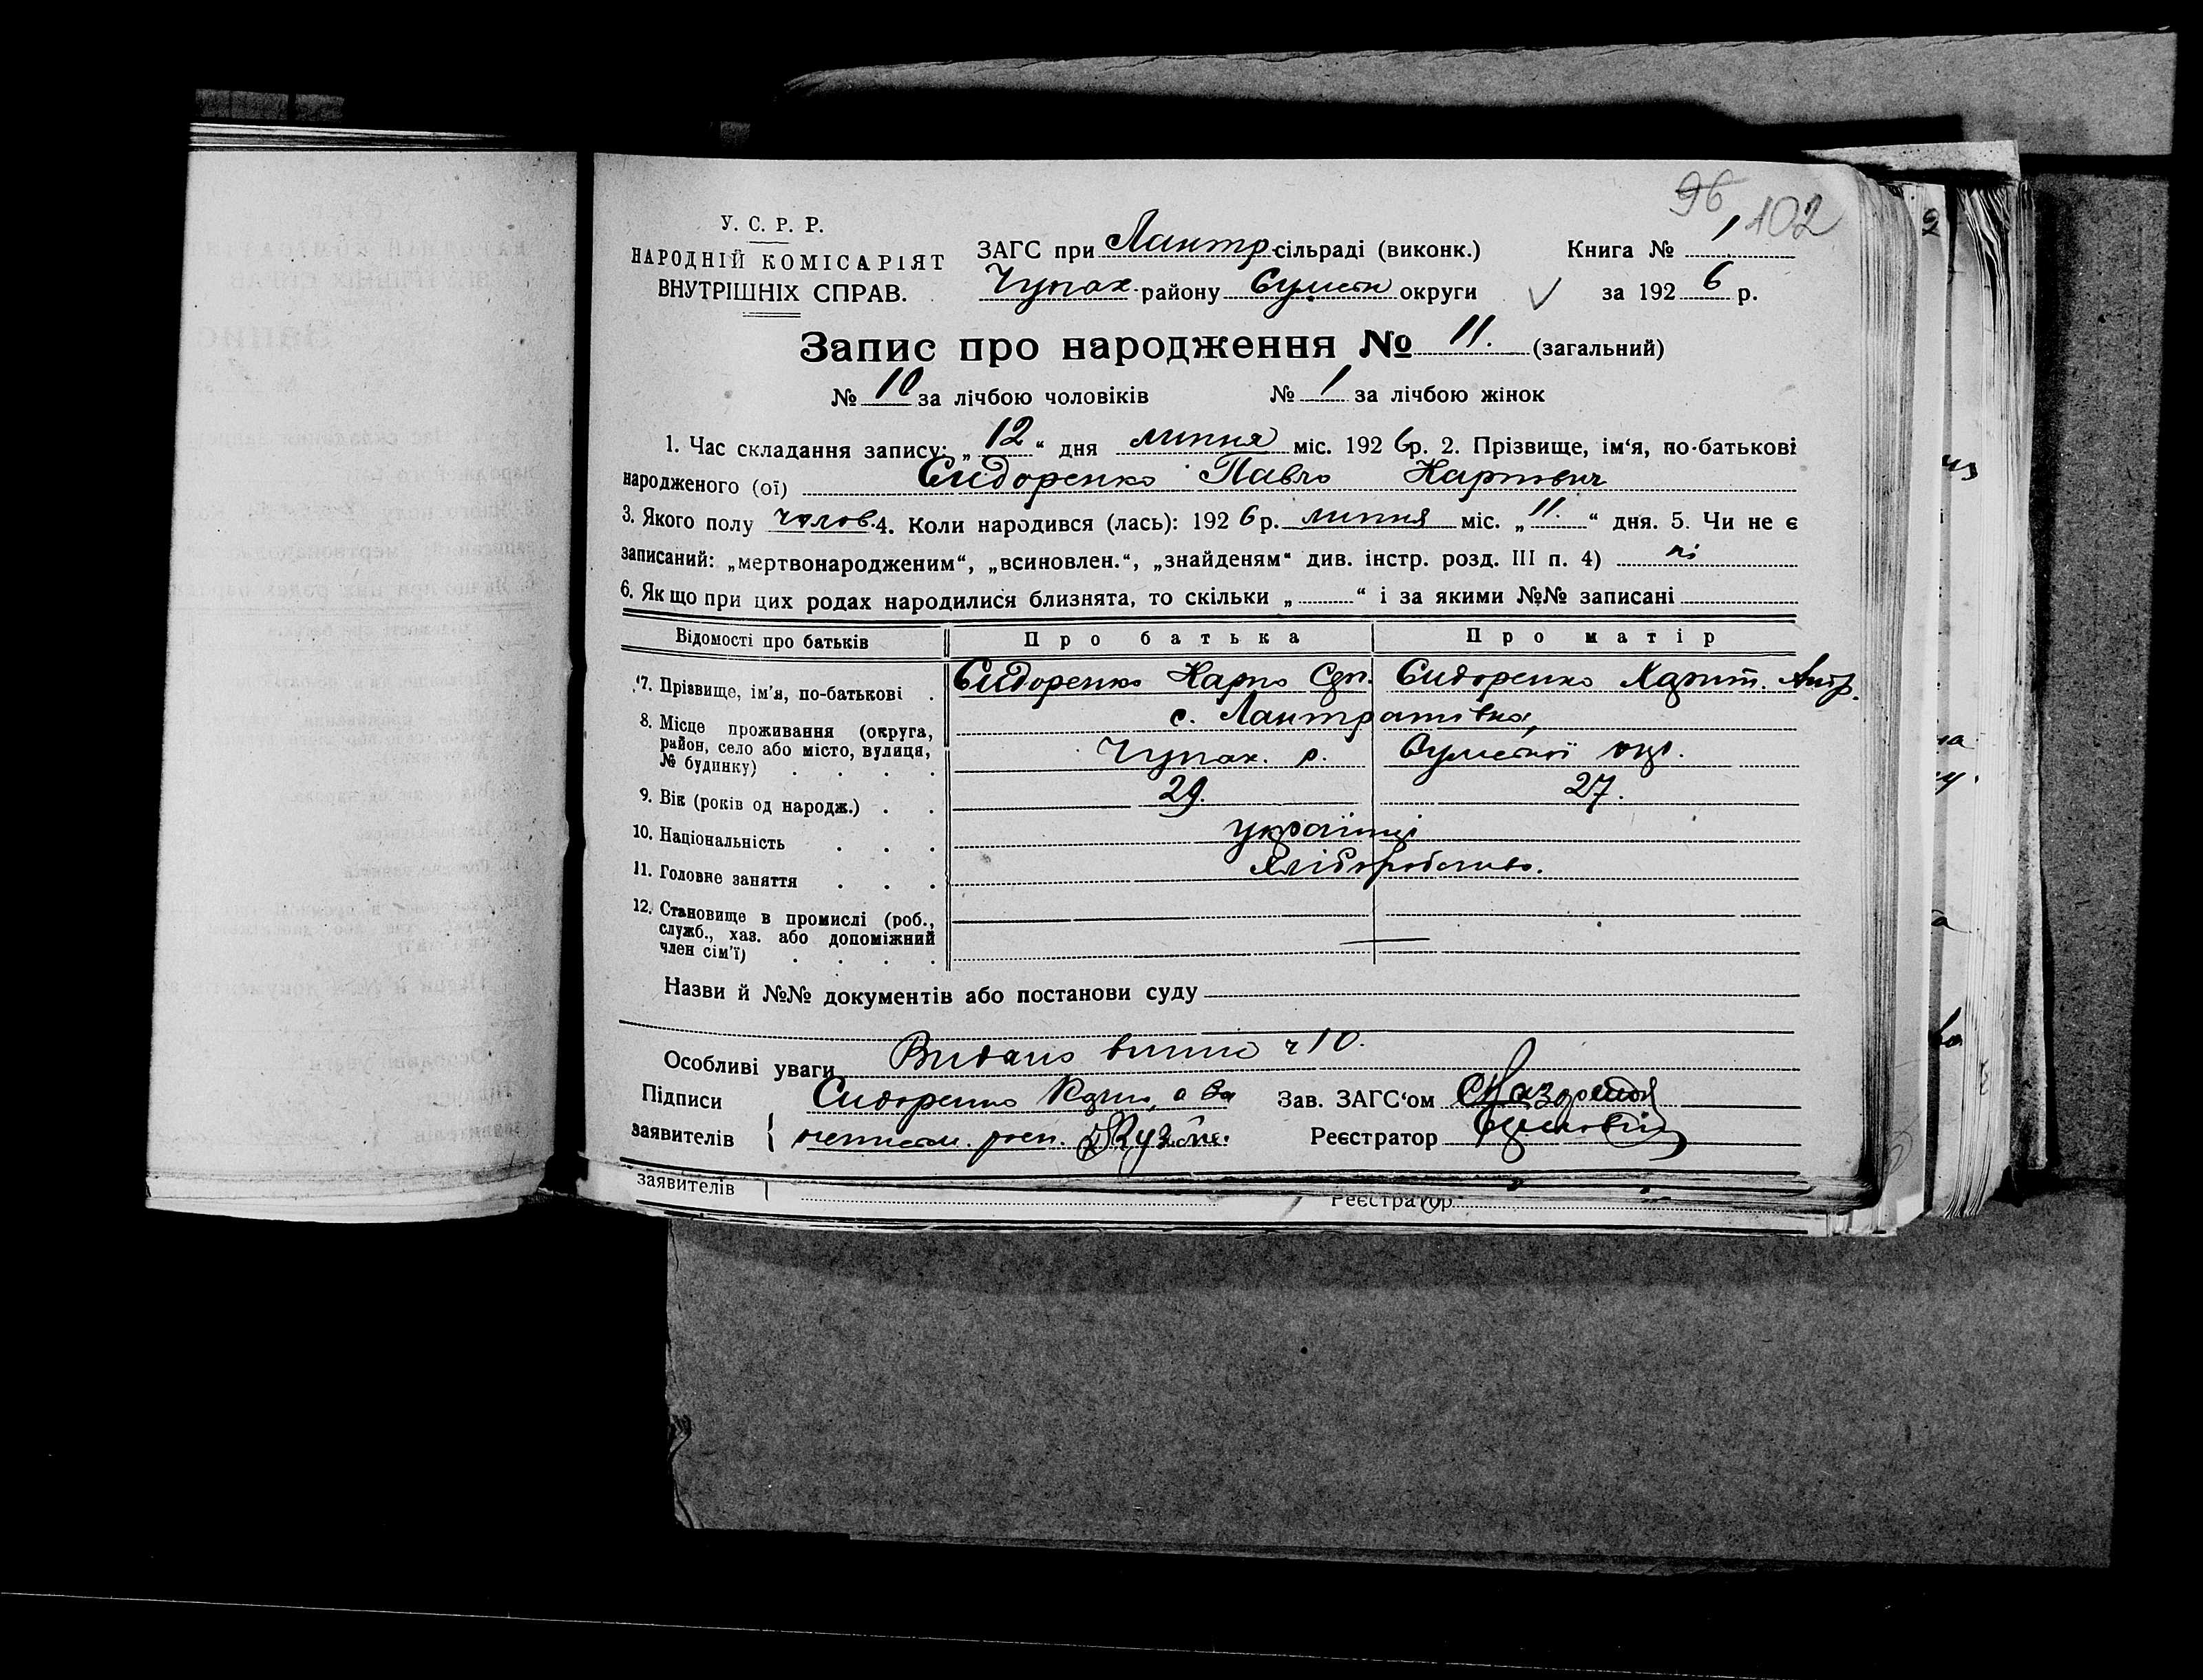 96 102
У. С. Р. Р.
НАРОДНІЙ КОМІСАРІЯТ
ВНУТРІШНІХ СПРАВ.
ЗАГС при Лантр. сільраді (виконк.)
Чупах. району Сумськ округи
Книга № 1
за 1926 р.
Запис про народження № 11. (загальний)
№ 10 за лічбою чоловіків № 1 за лічбою жінок
1. Час складання запису: „12“ дня липня міс. 1926р. 2. Прізвище, ім‘я, по-батькові
народженого (ої) Сидоренко Павло Карпович
3. Якого полу чолов. 4. Коли народився (лась): 1926р. липня міс. „11.“ дня. 5. Чи не є
записаний: „мертвонародженим“, „всиновлен.“, „знайденям“ див. інстр. розд. III п. 4) ні
6. Якщо при цих родах народилися близнята, то скільки „ “ і за якими №№ записані
Відомості про батьків Про батька Про матір
7. Прізвище, ім‘я, по-батькові . Сидоренко Карпо Сидоренко Харит. Андр.
8. Місце проживання (округа, с. Лантратівка,
район, село або місто, вулиця, Чупах. р. Сумської окр.
№ будинку) . . . .
9. Вік (років од народж.) . . 29. 27.
10. Національність . . . українці
11. Головне заняття . . . Хліборобство.
12. Становище в промислі (роб.,
служб., хаз. або допоміжний
член сім‘ї) . . . .
Назви й №№ документів або постанови суду
Особливі уваги Видано випис ч 10.
Підписи Сидоренко Карпо, а за Зав. ЗАГС‘ом
заявителів { неписьм. росп. Реєстратор
заявителів Реєстратор